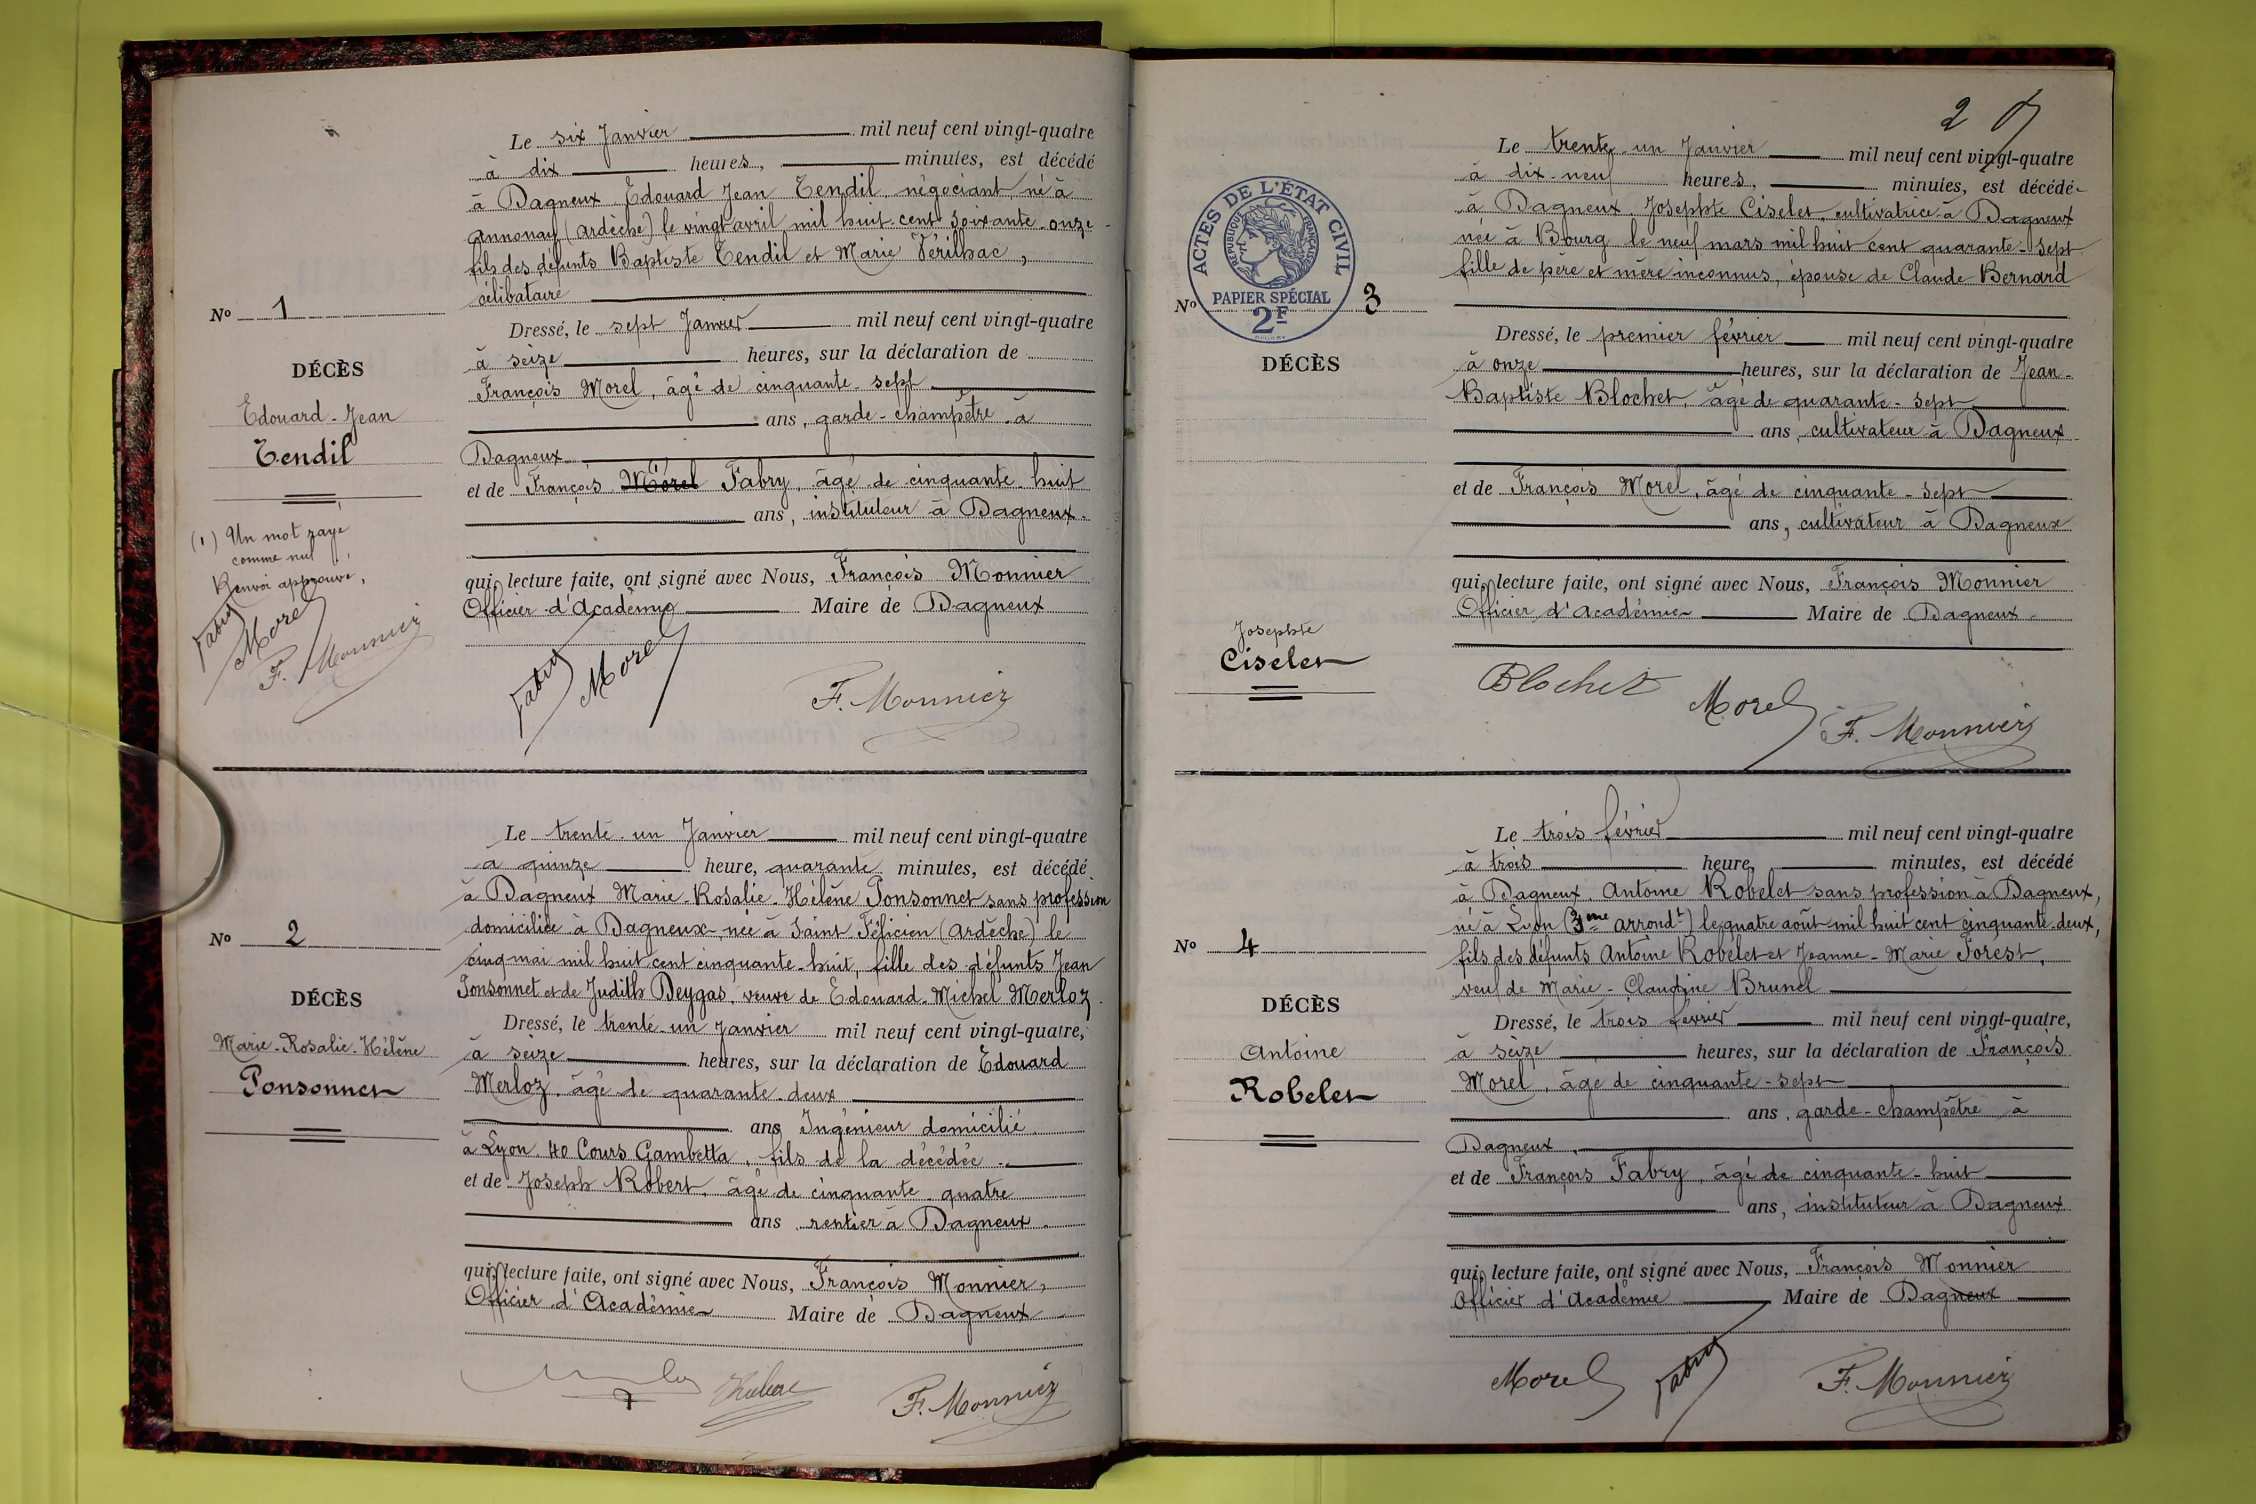 Le six Janvier mil neuf cent vingt-quatre
à dix heures, minutes, est décédé
à Dagneux Edouard Jean Tendil, négociant, né à
Annonay (Ardèche) le vingt avril mil huit cent soixante-onze
fils des défunts Baptiste Tendil et Marie Vérilhac,
célibataire
Nº 1
Dressé, le sept Janvier mil neuf cent vingt-quatre
à seize heures, sur la déclaration de
François Morel, âgé de cinquante-sept
ans, garde-champêtre à
Dagneux
et de François Morel Fabry, âgé de cinquante-huit
ans, instituteur à Dagneux.
qui, lecture faite, ont signé avec Nous, François Monnier
Officier d'Académie Maire de Dagneux
DÉCÈS
Edouard-Jean
Tendil
(1) Un mot rayé
comme nul
Renvoi approuvé,
Fabry
Morel
F. Monnier
Fabry Morel F. Monnier
Le trente-un Janvier mil neuf cent vingt-quatre
à quinze heure, quarante minutes, est décédé
à Dagneux Marie-Rosalie-Hélène Ponsonnet sans profession
domiciliée à Dagneux née à Saint Félicien (Ardèche) le
cinq mai mil huit cent cinquante-huit, fille des défunts Jean
Ponsonnet et de Judith Deygas, veuve de Edouard-Michel Merloz.
Nº 2
DÉCÈS
Marie-Rosalie-Hélène
Ponsonnet
Dressé, le trente-un Janvier mil neuf cent vingt-quatre,
à seize heures, sur la déclaration de Edouard
Merloz, âgé de quarante-deux
ans Ingénieur domicilié
à Lyon 40 Cours Gambetta, fils de la décédée.
et de Joseph Robert, âgé de cinquante quatre
ans rentier à Dagneux.
qui, lecture faite, ont signé avec Nous, François Monnier,
Officier d'Académie Maire de Dagneux
F. Monnier
2
Le trente-un Janvier mil neuf cent vingt-quatre
à dix-neuf heures, minutes, est décédé
à Dagneux, Josephte Ciselet, cultivatrice à Dagneux
née à Bourg le neuf mars mil huit cent quarante-sept
fille de père et mère inconnus, épouse de Claude Bernard
ACTES DE L'ÉTAT CIVIL
RÉPUBLIQUE FRANÇAISE
PAPIER SPÉCIAL
2F
Nº 3
DÉCÈS
Josephte
Ciselet
Dressé, le premier février mil neuf cent vingt-quatre
à onze heures, sur la déclaration de Jean-
Baptiste Blochet, âgé de quarante-sept
ans, cultivateur à Dagneux
et de François Morel, âgé de cinquante-sept
ans, cultivateur à Dagneux
qui, lecture faite, ont signé avec Nous, François Monnier
Officier d'Académie Maire de Dagneux
Blochet Morel F. Monnier
Le trois février mil neuf cent vingt-quatre
à trois heure, minutes, est décédé
à Dagneux, Antoine Robelet sans profession à Dagneux,
né à Lyon (3me arrondt) le quatre août mil huit cent cinquante-deux,
fils des défunts Antoine Robelet et Jeanne-Marie Forest,
veuf de Marie-Claudine Brunel
Nº 4
DÉCÈS
Antoine
Robelet
Dressé, le trois février mil neuf cent vingt-quatre,
à seize heures, sur la déclaration de François
Morel, âgé de cinquante-sept
ans, garde-champêtre à
Dagneux,
et de François Fabry, âgé de cinquante-huit
ans, instituteur à Dagneux
qui, lecture faite, ont signé avec Nous, François Monnier
Officier d'Académie Maire de Dagneux
Morel Fabry F. Monnier